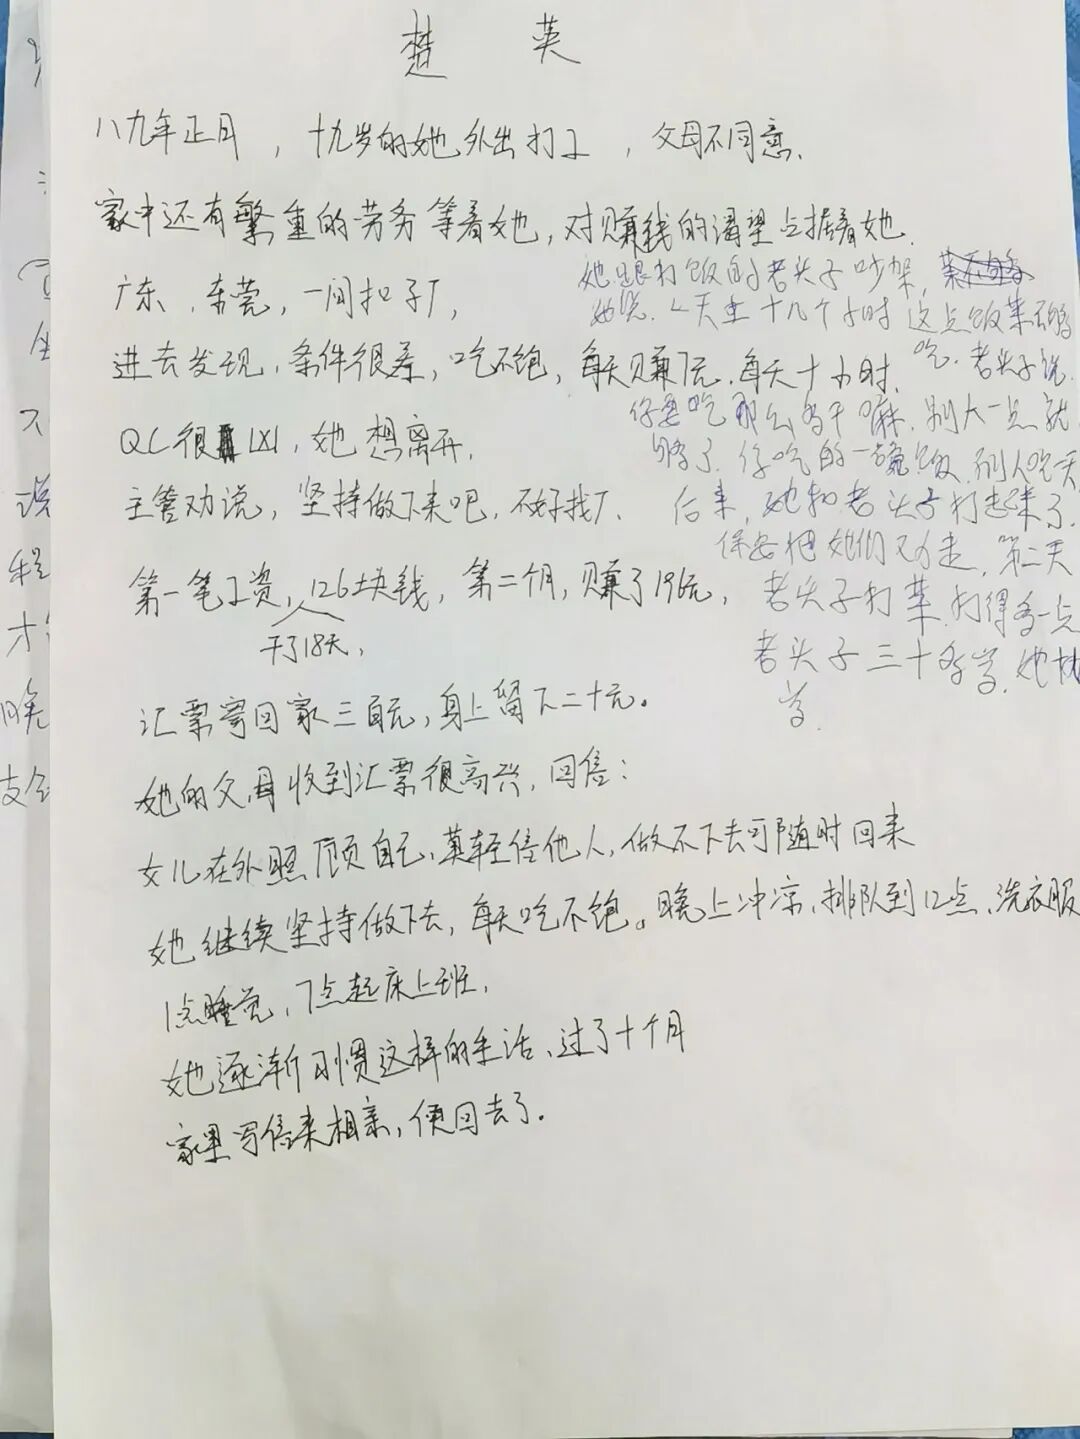 楚 英
八九年正月，十九岁的她外出打工，父母不同意.
家中还有繁重的劳务等着她，对赚钱的渴望占据着她.
广东，东莞，一间扣子厂,
进去发现，条件很差，吃不饱，每天赚7元，每天十小时.
QC很凶，她想离开.
主管劝说，坚持做下来吧，不好找厂.
第一笔工资，126块钱，第二个月，赚了196元，
干了18天，
汇票寄回家三百元，身上留下二十元。
她的父母收到汇票很高兴，回信：
女儿在外照顾自己，莫轻信他人，做不下去可随时回来
她继续坚持做下去，每天吃不饱。晚上冲凉，排队到12点、洗衣服
1点睡觉，7点起床上班，
她逐渐习惯这样的生活、过了十个月
家里写信来相亲，便回去了.
她跟打饭的老头子吵架，
她说.一天坐十几个小时 这点饭菜不够
吃.老头子说.
你要吃那么多干嘛.别人一点就
够了.你吃的一碗饭，别人吃天
后来，她和老头子打起来了.
保安把她们劝走，第二天
老头子打菜.打得多一点
老头子三十多岁.她
岁.